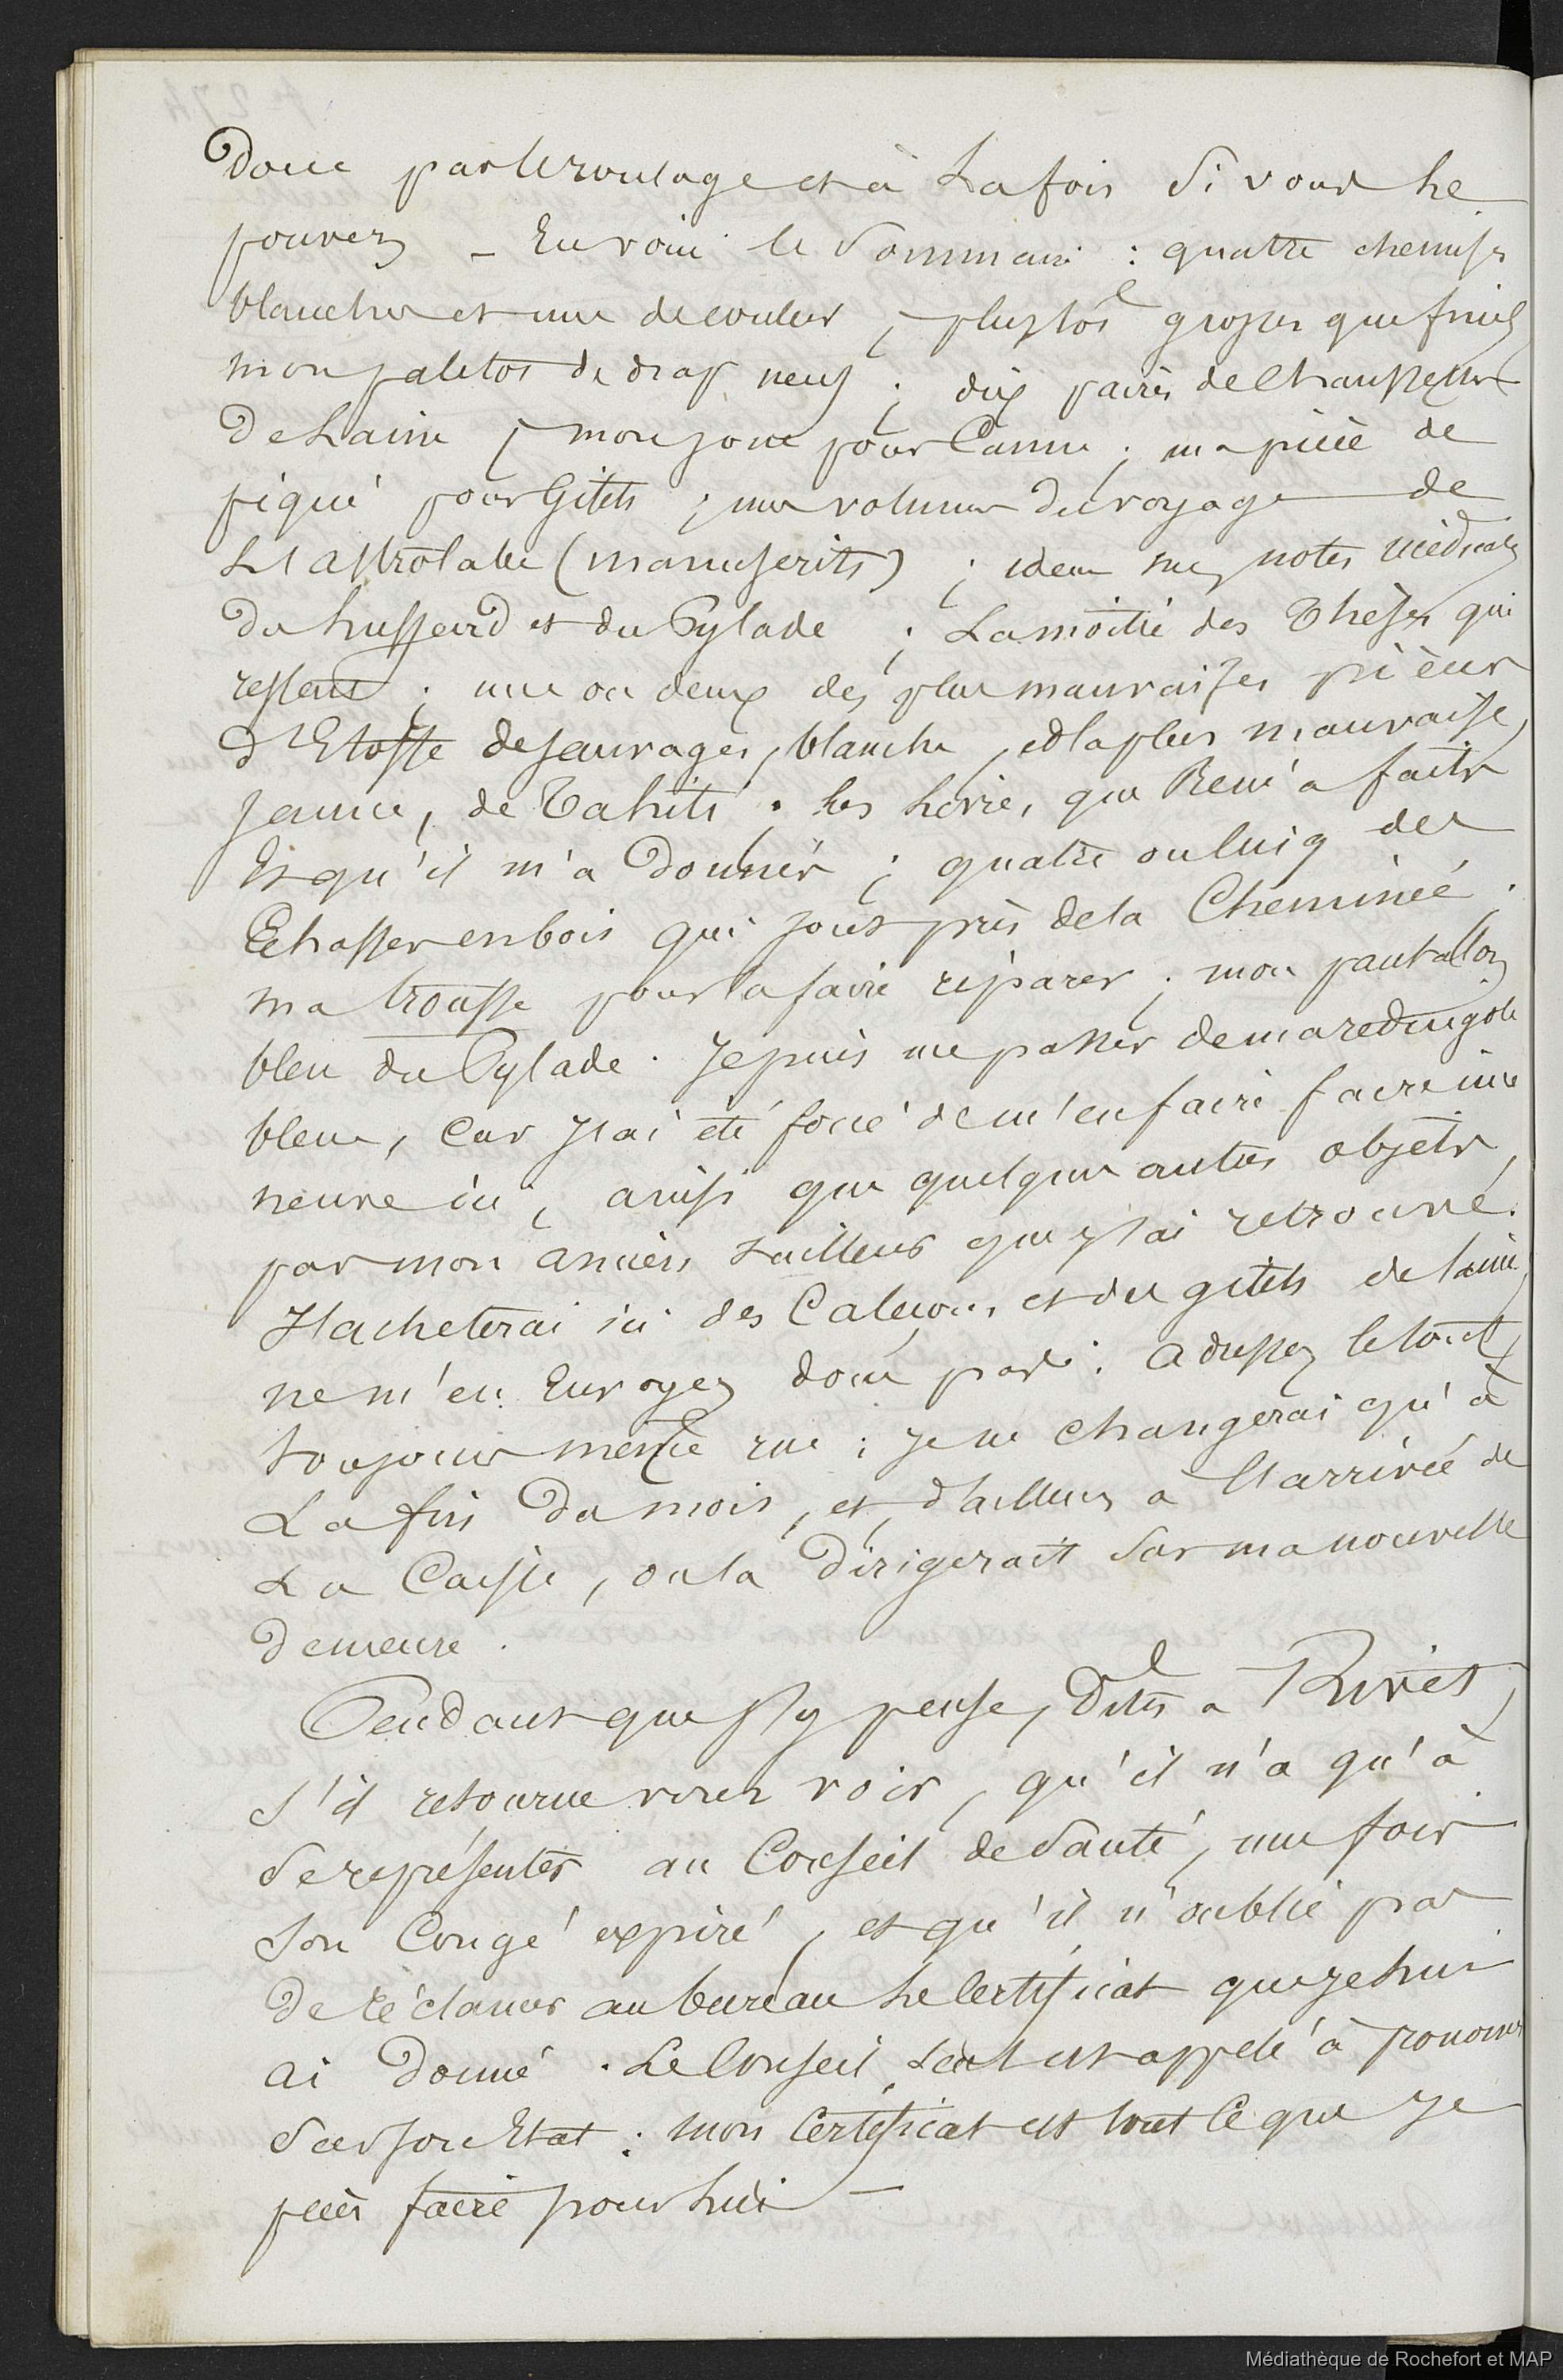 Donc par le roulage et à La fois Si vous le
pouvez _ En voici le Sommaire : quatre chemises
blanches et une de couleur ; plustôt grosses que fines
mon paletot de drap neuf ; dix paires de Chaussettes
De Laine ; mon jonc pour Canne ; ma pièce de
piqué pour Gilets ; mes volumes du voyage de
L'astrolabe (manuscrits) ; idem mes notes médicales
du hussard et du Pylade ; La moitié des Thèses qui
restent ; une ou deux des plus mauvaises pièces
d'Etoffe de sauvages, blanche, et la plus mauvaise,
jaune, de Tahiti ; les livres que René a faits
Et qu'il m'a Donnés ; quatre ou cinq des
Echasses en bois qui sont près de la Cheminée ;
ma trousse pour la faire réparer ; mon pantallon
bleu du Pylade. Je puis me passer de ma redingote
bleue, Car j'ai été forcé de m'en faire faire une
neuve ici, ainsi que quelques autres objets,
par mon ancien tailleur que j'ai retrouvé.
J'acheterai ici des Caleçons et des gilets de laine,
ne m'en Envoyez donc pas. adressez le tout,
toujours même rue ; je ne changerai qu'à
La fin Du mois, et d'ailleurs à l'arrivée de
La Caisse, on la Dirigerait Sur ma nouvelle
Demeure.
Pendant que j'y pense, Dites a Rivet,
S'il retourne vous voir, qu'il n'a qu'à
Se représenter au Conseil de Santé, une fois
Son Congé expiré, et qu'il n'oublie pas
De réclamer au bureau le Certificat que je lui
ai Donné. Le Conseil seul est appelé à prononcer
Sur son Etat : mon Certificat est tout Ce que je
puis faire pour lui —
Médiathèque de Rochefort et MAP